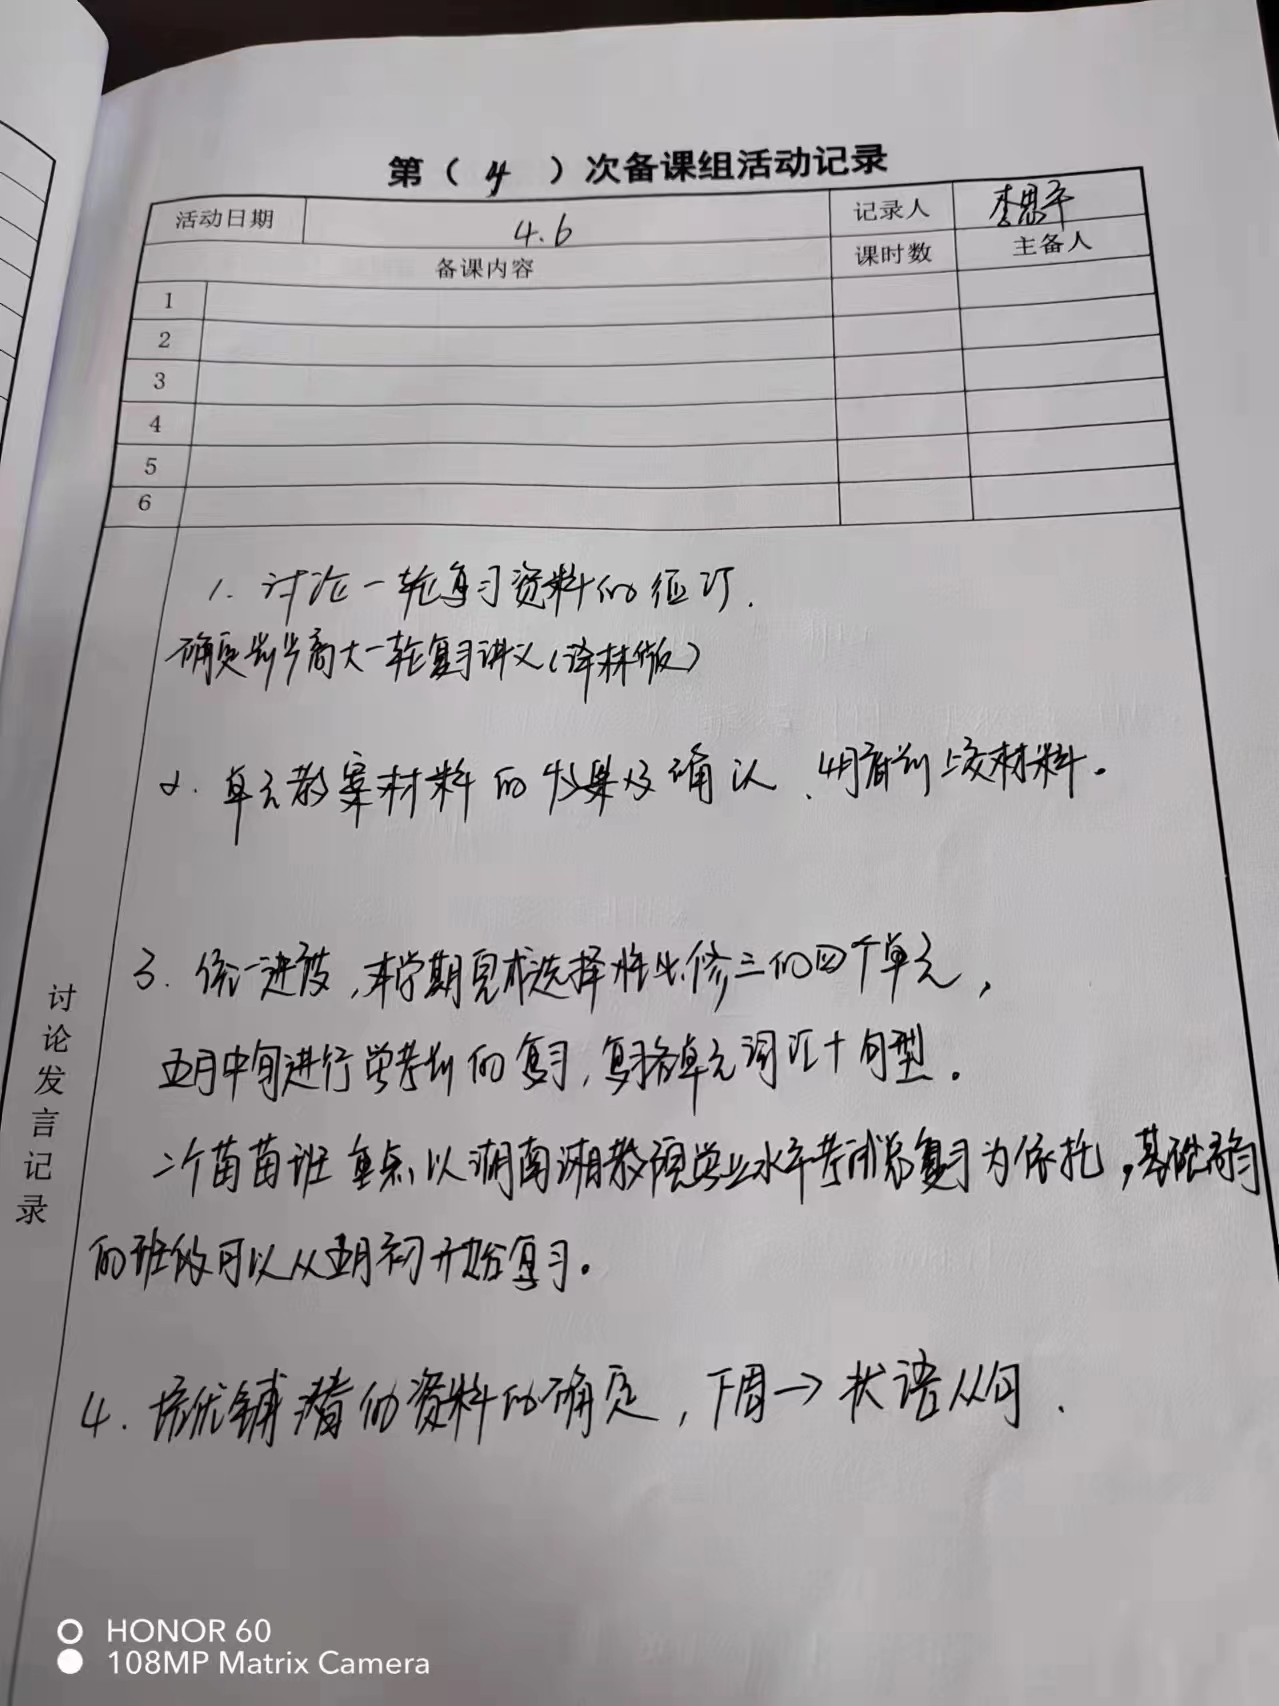 第（4）次备课组活动记录
活动日期 4.6 记录人 李思平
备课内容 课时数 主备人
1
2
3
4
5
6
讨论发言记录
1. 讨论一轮复习资料的征订.
确定步步高大一轮复习讲义(译林版)
2. 单元教案材料的收集及确认、4月底前上交材料。
3. 统一进度,本学期完成选择性必修三的四个单元,
五月中旬进行学考前的复习,复习各单元词汇+句型。
二个苗苗班重点以湖南湘教版学业水平考试总复习为依托,基础薄弱
的班级可以从五月初开始复习。
4. 培优辅潜的资料的确定,下周→状语从句.
HONOR 60
108MP Matrix Camera